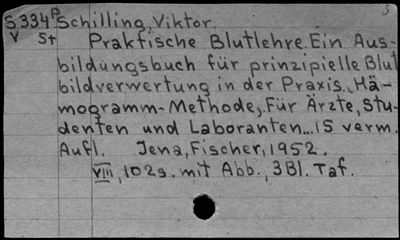 S 334 B Schilling, Viktor.
V St Praktische Blutlehre. Ein Aus-
bildungsbuch für prinzipielle Blut
bildverwertung in der Praxis. (Hä-
mogramm-Methode). Für Ärzte, Stu-
denten und Laboranten... 15 verm.
Aufl. Jena, Fischer, 1952.
VIII, 102 s. mit Abb., 3 Bl. Taf.